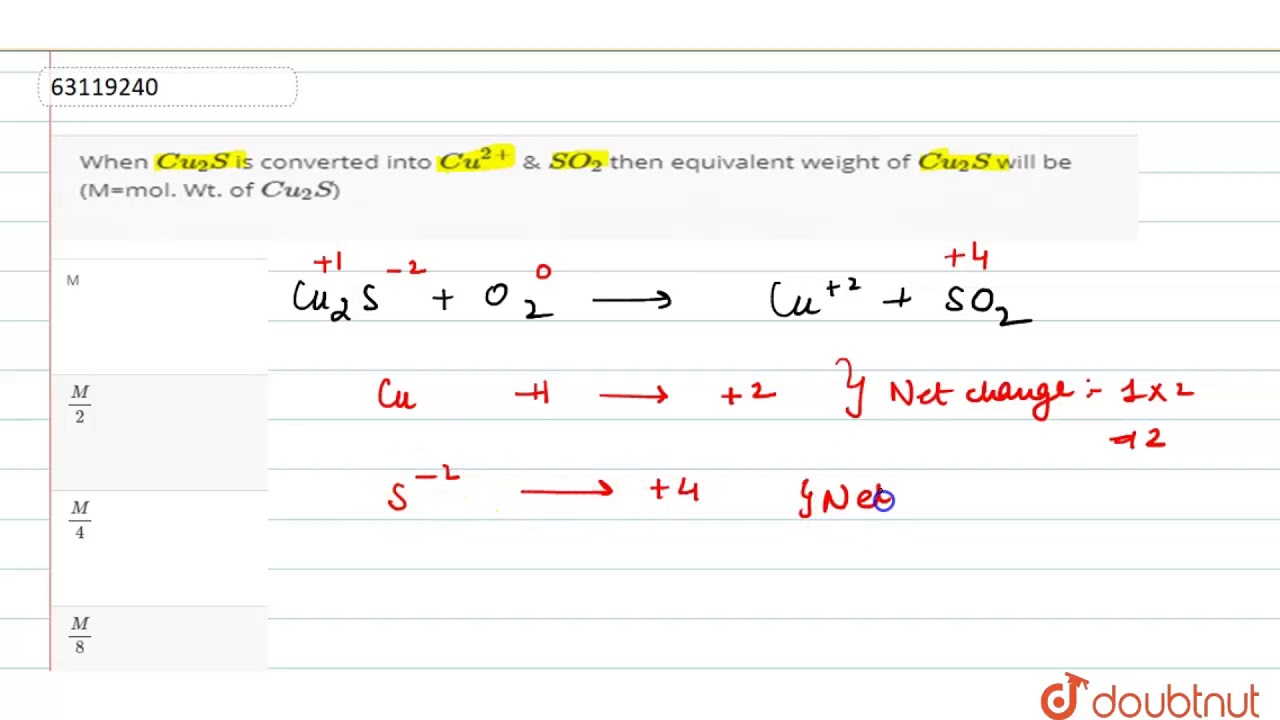 63119240
When Cu₂S is converted into Cu²⁺ & SO₂ then equivalent weight of Cu₂S will be
(M=mol. Wt. of Cu₂S)
M
M/2
M/4
M/8
+1 -2 0 +4
Cu₂S + O₂ → Cu⁺² + SO₂
Cu +1 → +2 } Net change :- 1×2
2
S⁻² → +4 } Net
doubtnut